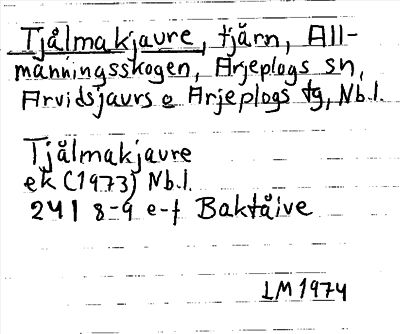 Tjålmakjaure, tjärn, All-
männingsskogen, Arjeplogs sn,
Arvidsjaurs o Arjeplogs tg, Nb.l.
Tjålmakjaure
ek (1973) Nb.l.
24 I 8-9 e-f Baktåive
LM 1974